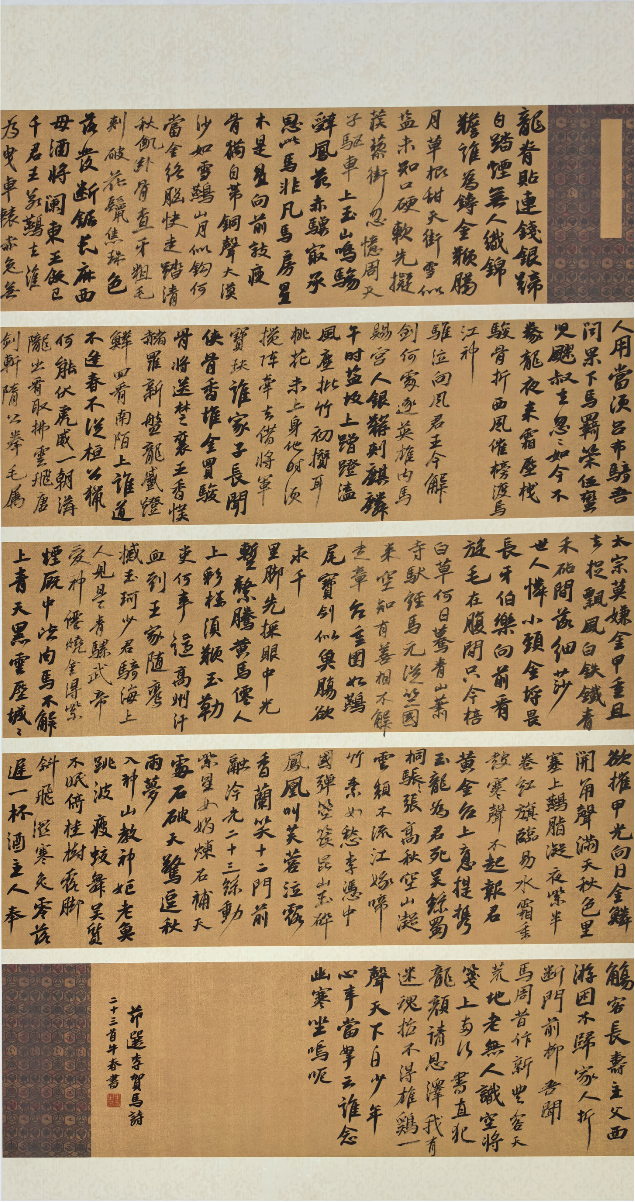 龍脊貼連錢銀蹄
白踏煙無人織錦
韂誰為鑄金鞭臘
月草根甜天街雪似
鹽未知口硬軟先擬
蒺藜銜忽憶周天
子驅車上玉山鳴騶
辭鳳苑赤驥最承
恩此馬非凡馬房星
本是星向前敲瘦
骨猶自帶銅聲大漠
沙如雪鷰山月似鈎何
當金絡腦快走踏清
秋飢卧骨查牙粗毛
刺破花鬣焦珠色
落髮斷鋸長麻西
母酒將闌東王飯已
干君王若鷰去誰
為曳車轅赤兔無
人用當須呂布騎吾
聞果下馬羈策任蠻
兒飂叔去忽忽如今不
豢龍夜來霜壓棧
駿骨折西風催榜渡烏
江神
騅泣向風君王今解
劍何處逐英雄內馬
賜宮人銀韉刺麒麟
午時鹽坂上蹭蹬溘
風塵批竹初攢耳
桃花未上身他時須
攪陣牽去借將軍
寶玦誰家子長聞
俠骨香堆金買駿
骨將送楚襄王香襆
赭羅新盤龍蹙鐙
鱗回看南陌上誰道
不逢春不從桓公獵
何能伏虎威一朝溝
隴出看取拂雲飛唐
劍斬隋公拳毛屬
太宗莫嫌金甲重且
去捉飄風白鐵銼青
禾砧間落細莎
世人憐小頸金埒畏
長牙伯樂向前看
旋毛在腹間只今掊
白草何日驀青山蕭
寺馱經馬元從竺國
來空知有善相不解
走章台重圍如鷰
尾寶劍似魚腸欲
求千
里脚先採眼中光
暫繫騰黃馬僊人
上彩樓須鞭玉勒
吏何事謫高州汗
血到王家隨鸞
撼玉珂少君騎海上
人見是青騾武帝
愛神僊燒金得紫
煙厩中皆肉馬不解
上青天黑雲壓城城
欲摧甲光向日金鱗
開角聲滿天秋色里
塞上鷰脂凝夜紫半
卷紅旗臨易水霜重
鼓寒聲不起報君
黃金台上意提攜
玉龍為君死吳絲蜀
桐張高秋空山凝
雲頹不流江娥啼
竹素女愁李憑中
國彈箜篌昆山玉碎
鳳凰叫芙蓉泣露
香蘭笑十二門前
融冷光二十三絲動
紫皇女媧煉石補天
處石破天驚逗秋
雨夢
入神山教神嫗老魚
跳波瘦蛟舞吳質
不眠倚桂樹露脚
斜飛濕寒兔零落
遲一杯酒主人奉
觴客長壽主父西
游困不歸家人折
斷門前柳吾聞
馬周昔作新豐客天
荒地老無人識空將
箋上兩行書直犯
龍顏請恩澤我有
迷魂招不得雄鷄一
聲天下白少年
心事當拏雲誰念
幽寒坐嗚呃
節選李賀馬詩
二十三首牛春書